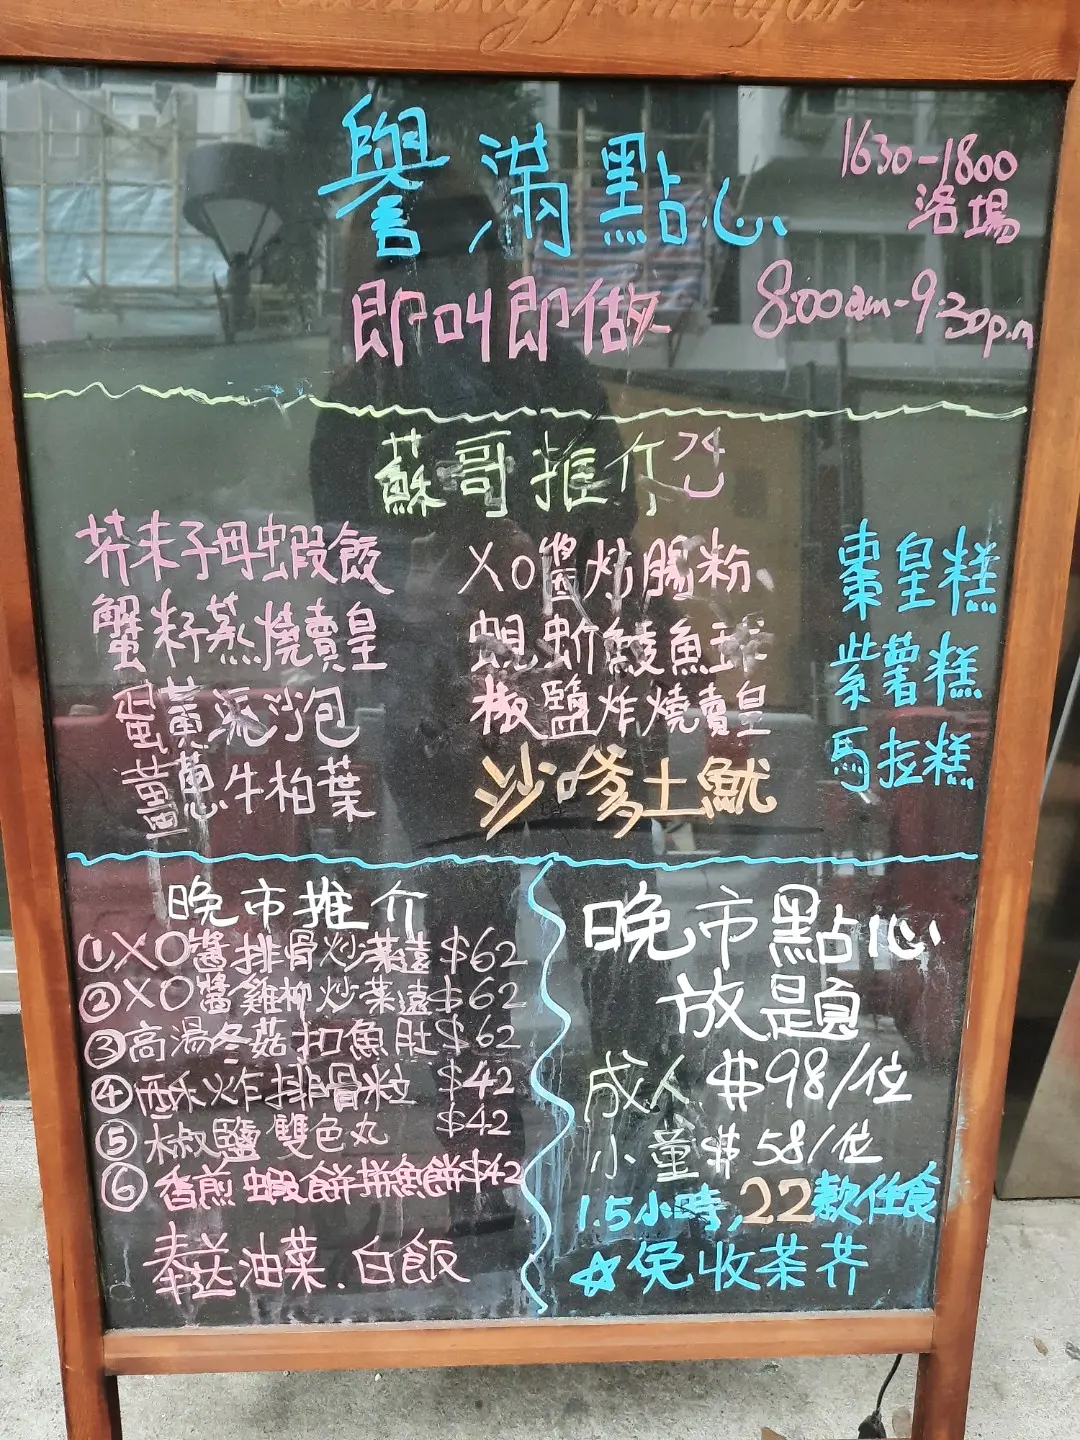 譽滿點心
1630-1800
落場
即叫即做
8:00am-9:30p.m
蘇哥推介
芥末子母蝦餃
蟹籽蒸燒賣皇
蛋黃流沙包
薑蔥牛柏葉
XO醬炒腸粉
蜆蚧鯪魚球
椒鹽炸燒賣皇
沙嗲土魷
棗皇糕
紫薯糕
馬拉糕
晚市推介
①XO醬排骨炒菜遠$62
②XO醬雞柳炒菜遠$62
③高湯冬菇扣魚肚$62
④酥炸排骨粒 $42
⑤椒鹽雙色丸 $42
⑥香煎蝦餅拼魚餅$42
奉送油菜.白飯
晚市點心
放題
成人 $98/位
小童$58/位
1.5小時,22款任食
☆免收茶芥